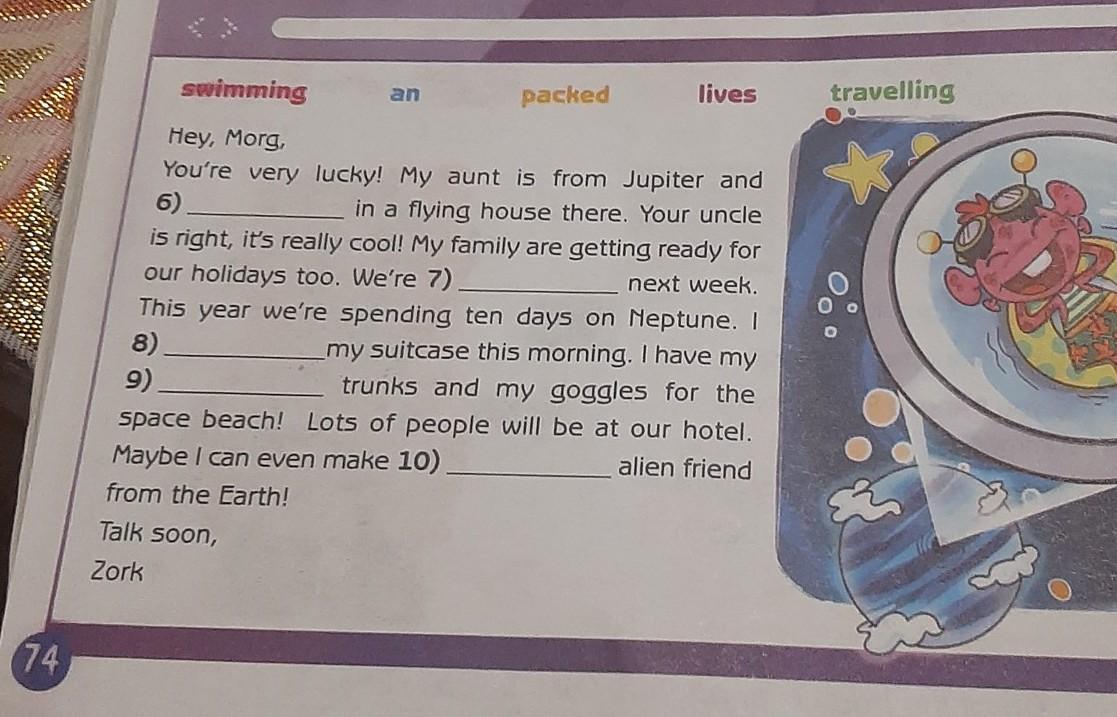 swimming an packed lives travelling
Hey, Morg,
You're very lucky! My aunt is from Jupiter and
6) ____________ in a flying house there. Your uncle
is right, it's really cool! My family are getting ready for
our holidays too. We're 7) ____________ next week.
This year we're spending ten days on Neptune. I
8) ____________ my suitcase this morning. I have my
9) ____________ trunks and my goggles for the
space beach! Lots of people will be at our hotel.
Maybe I can even make 10) ____________ alien friend
from the Earth!
Talk soon,
Zork
74